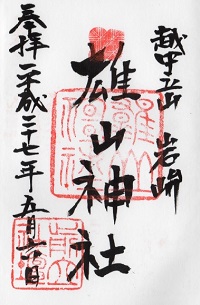 越中立山 岩峅
雄山神社
参拝 平成二十七年五月六日